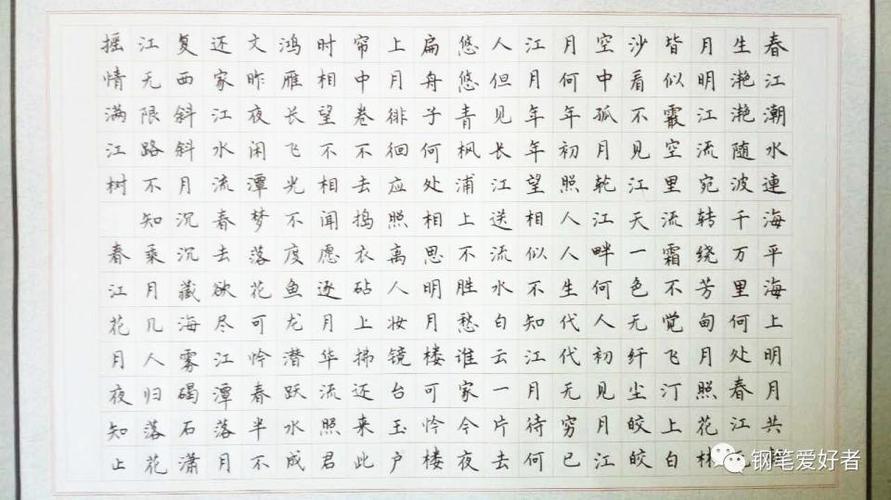 春江潮水連海平海上明月共
生滟滟随波千万里何处春江
月明江流宛转绕芳甸月照花林
皆似霰空里流霜不觉飞汀上白
沙看不见江天一色无纤尘皎皎
空中孤月乾江畔何人初见月江
月何年初照人人生代代无穷已
江月年年望相似不知江月待何
人但见长江送流水白云一片去
悠悠青枫浦上不胜愁谁家今夜
扁舟子何处相思明月楼可怜楼
上月徘徊应照离人妆镜台玉户
帘中卷不去捣衣砧上拂还来此
时相望不相闻愿逐月华流照君
鸿雁长飞光不度鱼龙潜跃水成
文昨夜闲潭梦落花可怜春半不
还家江水流春去欲尽江潭落月
复西斜斜月沉沉藏海雾碣石潇
江无限路不知乘月几人归落花
摇情满江树 春江花月夜知止
钢笔爱好者